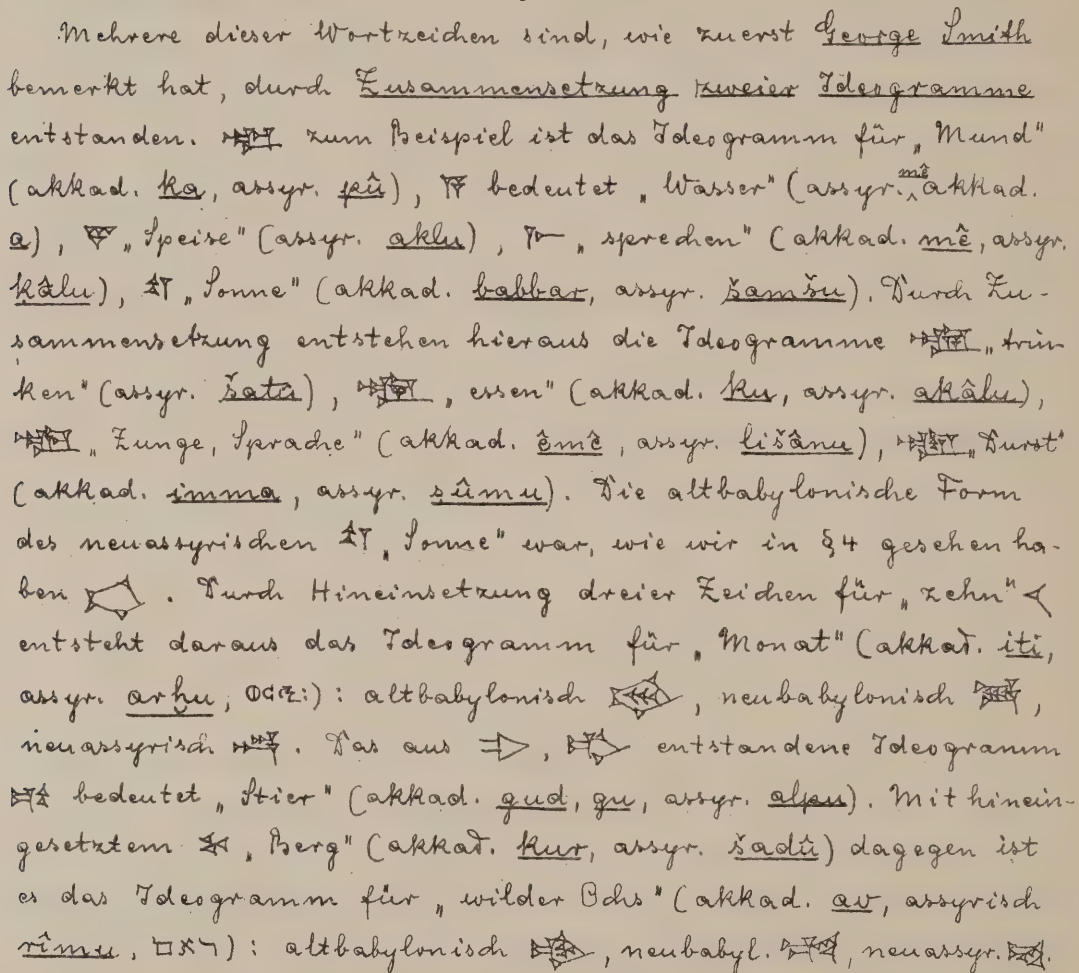 Mehrere dieser Wortzeichen sind, wie zuerst George Smith
bemerkt hat, durch Zusammensetzung zweier Ideogramme
entstanden. 𒅗 zum Beispiel ist das Ideogramm für „Mund"
(akkad. ka, assyr. pû), 𒀀 bedeutet „Wasser" (assyr. mê akkad.
a), 𒃻 „Speise" (assyr. aklu), 𒈨 „sprechen" (akkad. mê, assyr.
kâlu), 𒌓 „Sonne" (akkad. babbar, assyr. šamšu). Durch Zu-
sammensetzung entstehen hieraus die Ideogramme 𒅘 „trin-
ken" (assyr. šatû), 𒅥 „essen" (akkad. ku, assyr. akâlu),
𒅴 „Zunge, Sprache" (akkad. êmê, assyr. lišânu), „Durst"
(akkad. imma, assyr. sûmu). Die altbabylonische Form
des neuassyrischen 𒌓 „Sonne" war, wie wir in §4 gesehen ha-
ben . Durch Hineinsetzung dreier Zeichen für „zehn" 𒌋
entsteht daraus das Ideogramm für „Monat" (akkad. iti,
assyr. arḫu, ): altbabylonisch , neubabylonisch ,
neuassyrisch . Das aus , entstandene Ideogramm
𒄞 bedeutet „Stier" (akkad. gud, gu, assyr. alpu). Mit hinein-
gesetztem 𒆳 „Berg" (akkad. kur, assyr. šadû) dagegen ist
es das Ideogramm für „wilder Ochs" (akkad. av, assyrisch
rîmu, ראם): altbabylonisch , neubabyl. , neuassyr. .